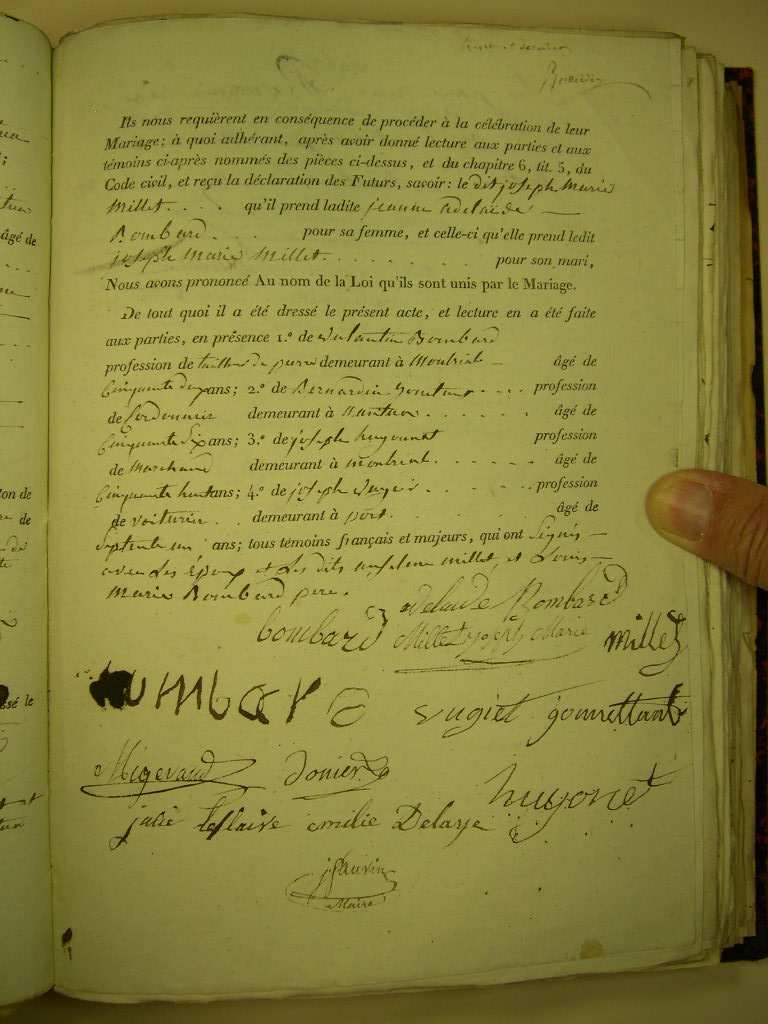 Ils nous requièrent en conséquence de procéder à la célébration de leur
Mariage; à quoi adhérant, après avoir donné lecture aux parties et aux
témoins ci-après nommés des pièces ci-dessus, et du chapitre 6, tit. 5, du
Code civil, et reçu la déclaration des Futurs, savoir: le dit joseph Marie
Millet . . . . qu'il prend ladite jeanne adelaide —
Bombard . . . pour sa femme, et celle-ci qu'elle prend ledit
joseph Marie Millet . . . . . . . . pour son mari,
Nous avons prononcé Au nom de la Loi qu'ils sont unis par le Mariage.
De tout quoi il a été dressé le présent acte, et lecture en a été faite
aux parties, en présence 1.º de valantin Bombard
profession de tailleur de pierre demeurant à Montréal — âgé de
Cinquante deux ans; 2.º de Bernardin . . . profession
de Cordonnier demeurant à Nantua . . . . . . âgé de
Cinquante Six ans; 3.º de joseph hugonnet profession
de Marchand demeurant à Montréal . . . . . âgé de
Cinquante huit ans; 4.º de joseph . . . . . profession
de voiturier . . demeurant à port . . . . . âgé de
Septente un ans; tous témoins français et majeurs, qui ont Signés —
avec Les Époux et Les dits anselme millet, et Louis —
Marie Bombard père.
adelaide Bombard
bombard Millet joseph Marie millet
bumbard vugiet gourettant
Migevand donier
hugonet
julie emilie Delaye
jSauvin
Maire
âgé de
ssé le